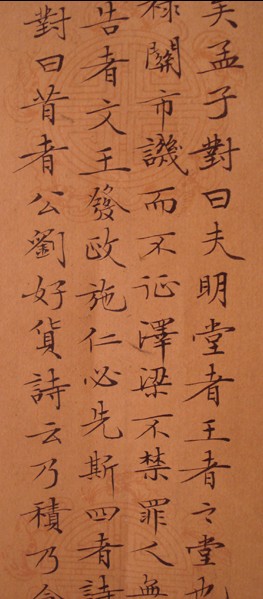 孟子對曰夫明堂者王者之堂也
祿關市譏而不征澤梁不禁罪人無
告者文王發政施仁必先斯四者詩
對曰昔者公劉好貨詩云乃積乃倉